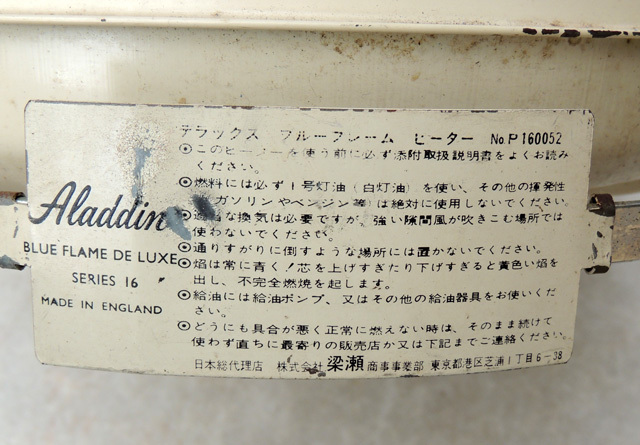 デラックス ブルーフレーム ヒーター No.P160052
⦿このヒーターを使う前に必ず添附取扱説明書をよくお読み
ください。
⦿燃料には必ず1号灯油(白灯油)を使い、その他の揮発性
(ガソリンやベンジン等)は絶対に使用しないでください。
な換気は必要ですが、強い隙間風が吹きこむ場所では
使わないでください。
⦿通りすがりに倒すような場所には置かないでください。
⦿焰は常に青く!芯を上げすぎたり下げすぎると黄色い焰を
出し、不完全燃焼を起します。
⦿給油には給油ポンプ、又はその他の給油器具をお使いくだ
さい。
⦿どうにも具合が悪く正常に燃えない時は、そのまま続けて
使わず直ちに最寄りの販売店か又は下記までご連絡ください。
Aladdin
BLUE FLAME DE LUXE
SERIES 16
MADE IN ENGLAND
日本総代理店 株式会社梁瀬 商事事業部 東京都港区芝浦1丁目6-38